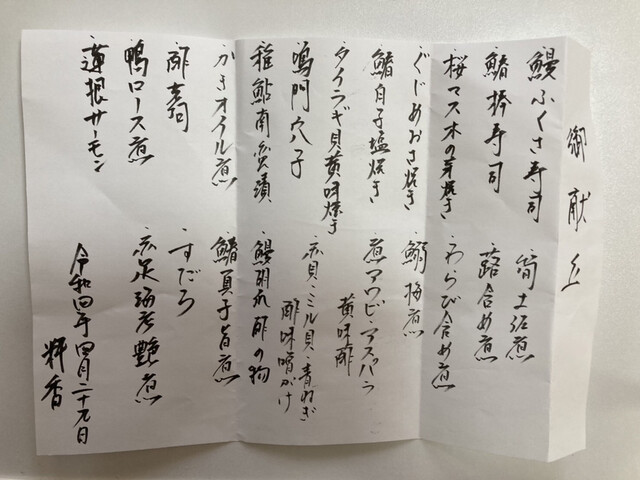 御献立
・鰻ふくさ寿司
・鰆棒寿司
・桜マス木の芽焼き
・ぐじめおさ焼き
・鰆白子塩焼き
・タイラギ貝黄味焼き
・鳴門穴子
・稚鮎南蛮漬
・かきオイル煮
・酢寿司
・鴨ロース煮
・蓮根サーモン
・筍土佐煮
・蕗含め煮
・わらび含め煮
・鰯梅煮
・煮アワビ・アスパラ
黄味酢
・赤貝・ミル貝・青ねぎ
酢味噌がけ
・鰻胡瓜酢の物
・鰆真子旨煮
・すだろ
・赤足海老艶煮
令和四年四月二十九日
輝香